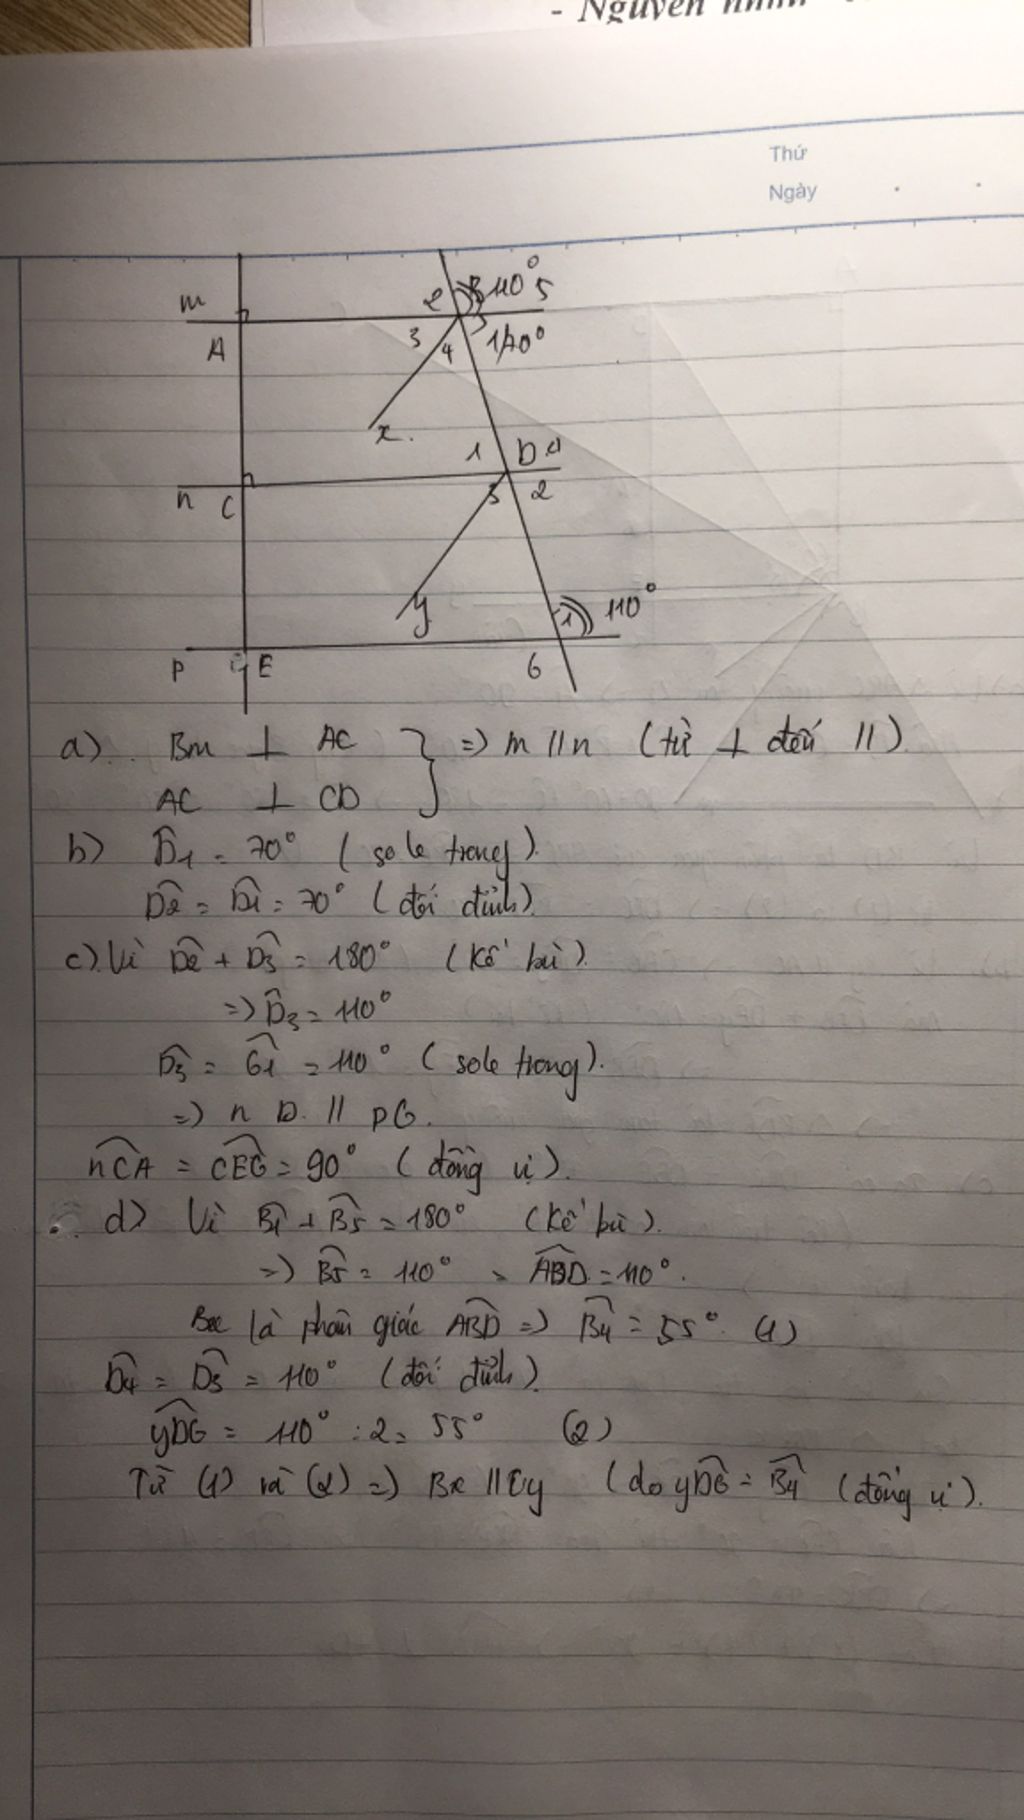 - Nguyễn
Thứ
Ngày
m
2
110°
5
A
3
4
70°
x
1
D
4
n
C
3
2
y
1
110°
P
E
G
a) Bm ⊥ AC } => m // n (từ ⊥ đến //)
AC ⊥ CD
b) D̂1 = 70° (so le trong).
D̂2 = D̂1 = 70° (đối đỉnh)
c) Vì D̂2 + D̂3 = 180° (kề bù).
=> D̂3 = 110°
D̂3 = Ĝ1 = 110° (sole trong).
=> n D // pG.
nCA = CEG = 90° (đồng vị).
d) Vì B̂1 + B̂5 = 180° (kề bù).
=> B̂5 = 110° = ABD = 110°.
Bx là phân giác ABD => B̂4 = 55° (1)
D̂4 = D̂3 = 110° (đối đỉnh)
yDG = 110° : 2 = 55° (2)
Từ (1) và (2) => Bx // Dy (do yDG = B̂4 (đồng vị).